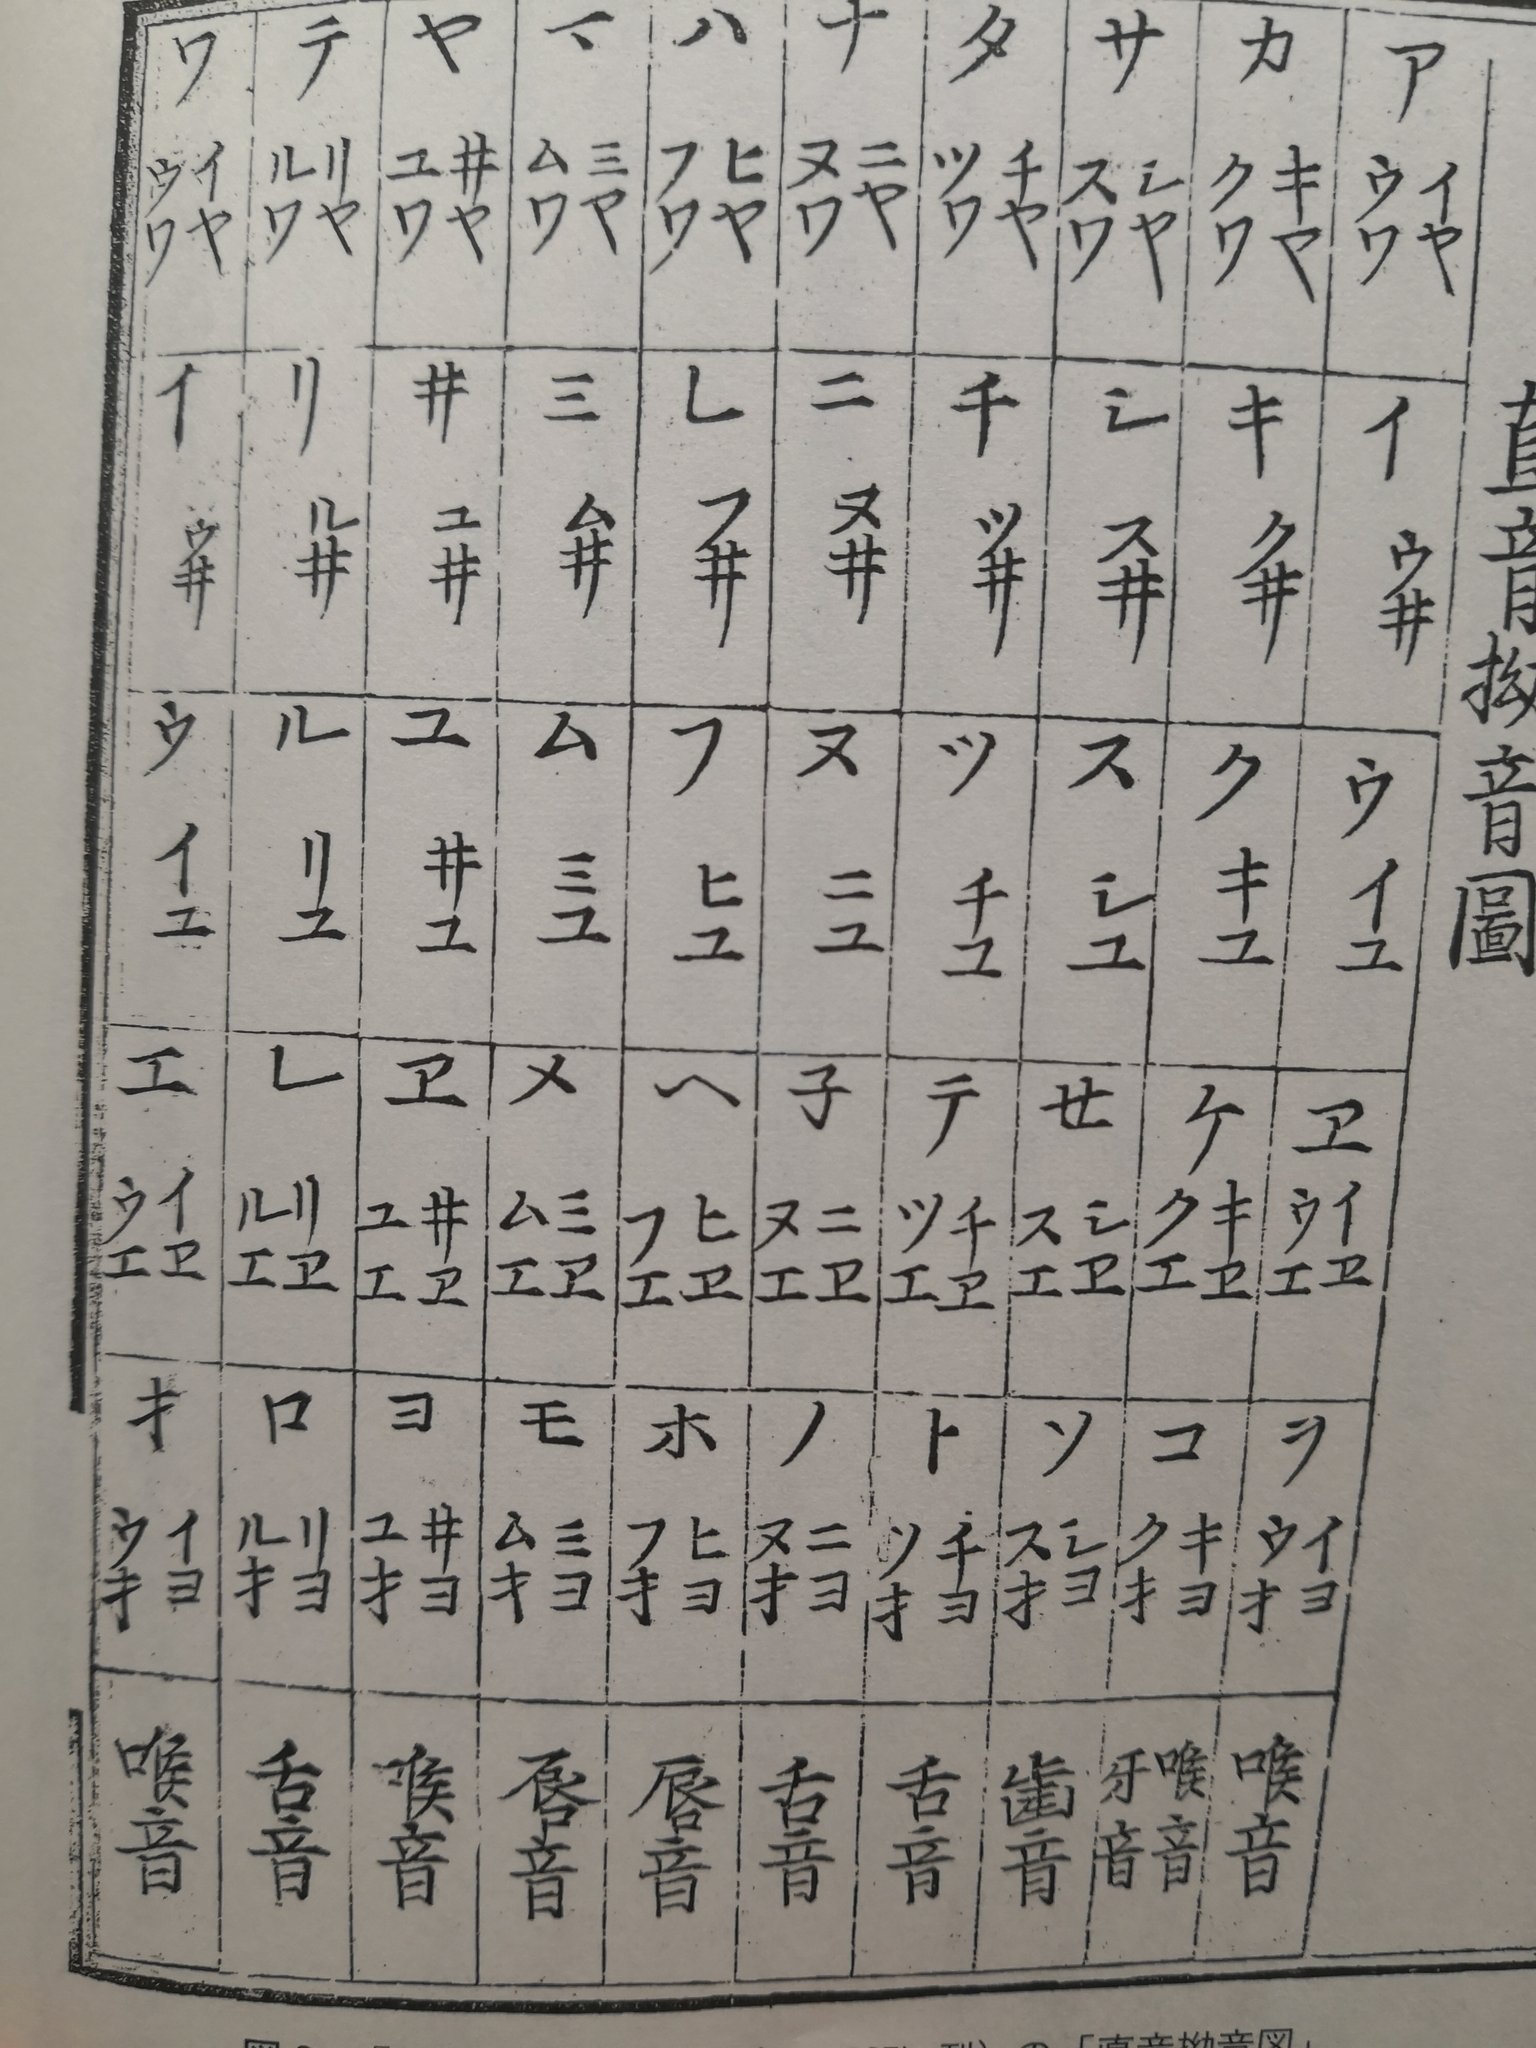 直音拗音圖
ア イヤ ウワ イ ウヰ ウ イユ ヱ イヱ ウエ ヲ イヨ ウオ 喉音
カ キヤ クワ キ クヰ ク キユ ケ キヱ クエ コ キヨ クオ 喉音 牙音
サ シヤ スワ シ スヰ ス シユ セ シヱ スエ ソ シヨ スオ 歯音
タ チヤ ツワ チ ツヰ ツ チユ テ チヱ ツエ ト チヨ ツオ 舌音
ナ ニヤ ヌワ ニ ヌヰ ヌ ニユ 子 ニヱ ヌエ ノ ニヨ ヌオ 舌音
ハ ヒヤ フワ し フヰ フ ヒユ ヘ ヒヱ フエ ホ ヒヨ フオ 唇音
マ ミヤ ムワ ミ ムヰ ム ミユ メ ミヱ ムエ モ ミヨ ムオ 唇音
ヤ ヰヤ ユワ ヰ ユヰ ユ ヰユ ヱ ヰヱ ユエ ヨ ヰヨ ユオ 喉音
テ リヤ ルワ リ ルヰ ル リユ レ リヱ ルエ ロ リヨ ルオ 舌音
ワ イヤ ウワ イ ウヰ ウ イユ エ イヱ ウエ オ イヨ ウオ 喉音
刊）の「直音拗音図」